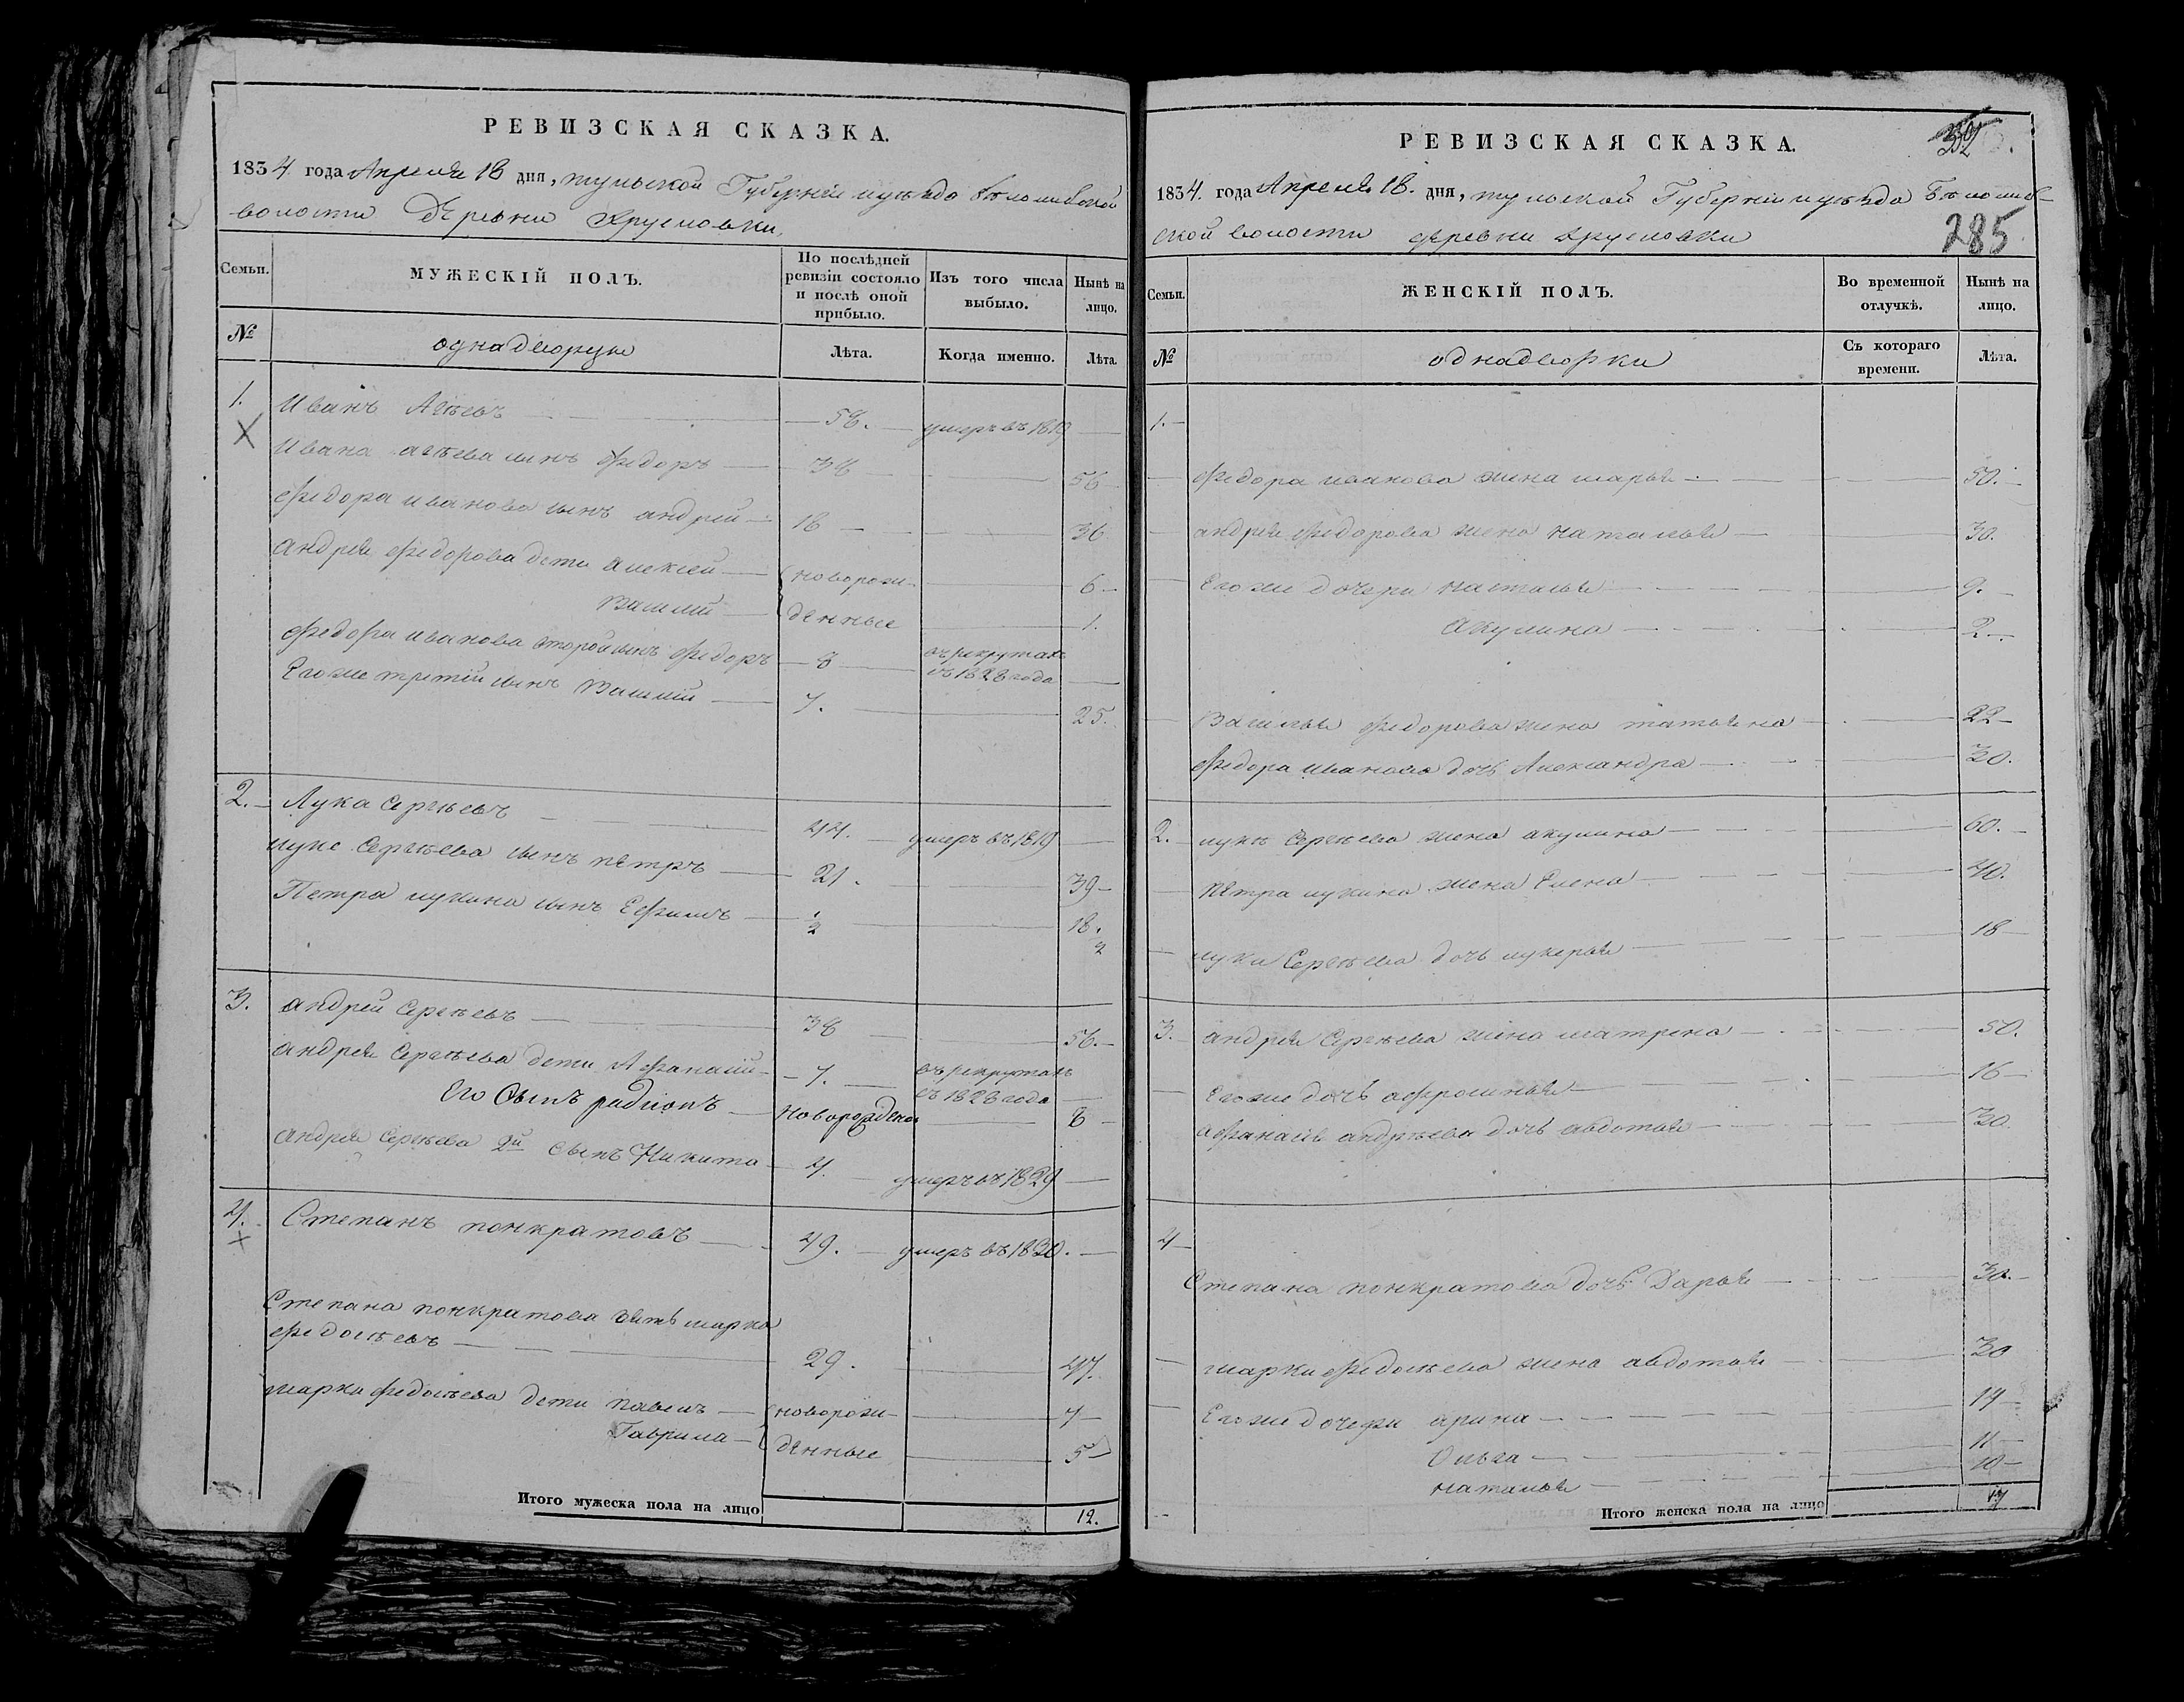 РЕВИЗСКАЯ СКАЗКА.
1834 года Апреля 18 дня, тульской Губерніи и уѣзда
волости Деревни
Семьи.
МУЖЕСКІЙ ПОЛЪ.
По послѣдней ревизіи состояло и послѣ оной прибыло.
Изъ того числа выбыло.
Нынѣ на лицо.
№
однадворцы
Лѣта.
Когда именно.
Лѣта.
1. Иванъ Агѣевъ 58. умеръ въ 1819
Ивана агѣева сынъ Федоръ 38 56
Федора иванова сынъ андрей 18 36
андрея федорова дети алексей новорож- 6
Василий денные 1.
Федора иванова второй сынъ федоръ 8 въ рекрутахъ съ 1828 года
Егоже третий сынъ Василий 7. 25.
2. Лука Сергѣевъ 44. умеръ въ 1819
луки Сергѣева сынъ петръ 21. 39
Петра лукина сынъ Ефимъ ½ 18.½
3. андрей Сергѣевъ 38 56.
андрея Сергѣева дети Афанасий 7. въ рекрутахъ съ 1828 года
Его Сынъ радионъ новорожденой 8
андрея Сергѣева 2й Сынъ Никита 4. умеръ въ 1829
4. Степанъ понкратовъ 49. умеръ въ 1830.
Степана понкратова зять марка
федосѣевъ 29. 47.
марка федосѣева дети павелъ новорож- 7
Гаврила денные 5
Итого мужеска пола на лицо 12.
РЕВИЗСКАЯ СКАЗКА.
1834. года Апреля 18. дня, тульской Губерніи и уѣзда
ской волости деревни
285
Семьи.
ЖЕНСКІЙ ПОЛЪ.
Во временной отлучкѣ.
Нынѣ на лицо.
№
однадворки
Съ котораго времени.
Лѣта.
1.
федора иванова жена марья 50.
андрея федорова жена наталья 30.
Егоже дочери наталья 9.
Акулина 2.
Василья федорова жена татьяна 22
федора иванова дочь Александра 30.
2. луки Сергѣева жена акулина 60.
петра лукина жена Елена 40.
луки Сергѣева дочь лукерья 18
3. андрея Сергѣева жена матрена 50.
Егоже дочь афросинья 16
афанасия андрѣева дочь авдотья
4
Степана понкратова дочь Дарья 30.
марки федосѣева жена авдотья 30
Егоже дочери арина 14
Ольга 11
наталья 10
Итого женска пола на лицо 17